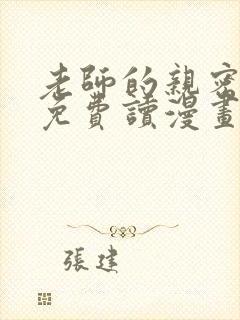 老師的親密
免費讀漫畫
張建